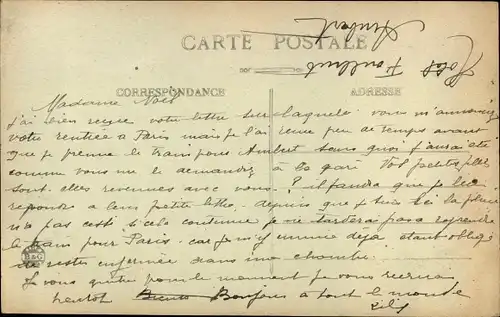 Hotel Foulhut
Ambert
CARTE POSTALE
CORRESPONDANCE
ADRESSE
Madame Noel
J'ai bien reçue votre lettre sur laquelle vous m'annoncez
votre rentrée a Paris mais je l'ai reçue peu de temps avant
que je prenne le train pour Ambert sans quoi j'aurai été
comme vous me le demandiez à la gare Vos petites filles
sont elles revenues avec vous ? il faudra que je leur
reponde a leur petite lettre depuis que je suis ici la pluie
n'a pas cessé si cela continue je ne tarderai pas a reprendre
le train pour Paris car je m'y ennuie déja étant obligé
de rester enfermée dans une chambre
Je vous quitte pour le moment je vous reverrai
bientot Bonjour a tout le monde
B&G